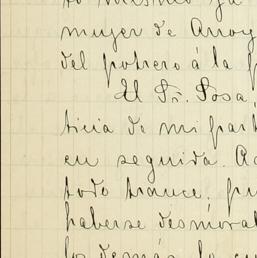 mujer de Arroy
del potrero á la p
El Sr. Sosa,
ticia de mi part
en seguida. Ac
todo trance, pu
haberse desmoral
los demás, lo cu